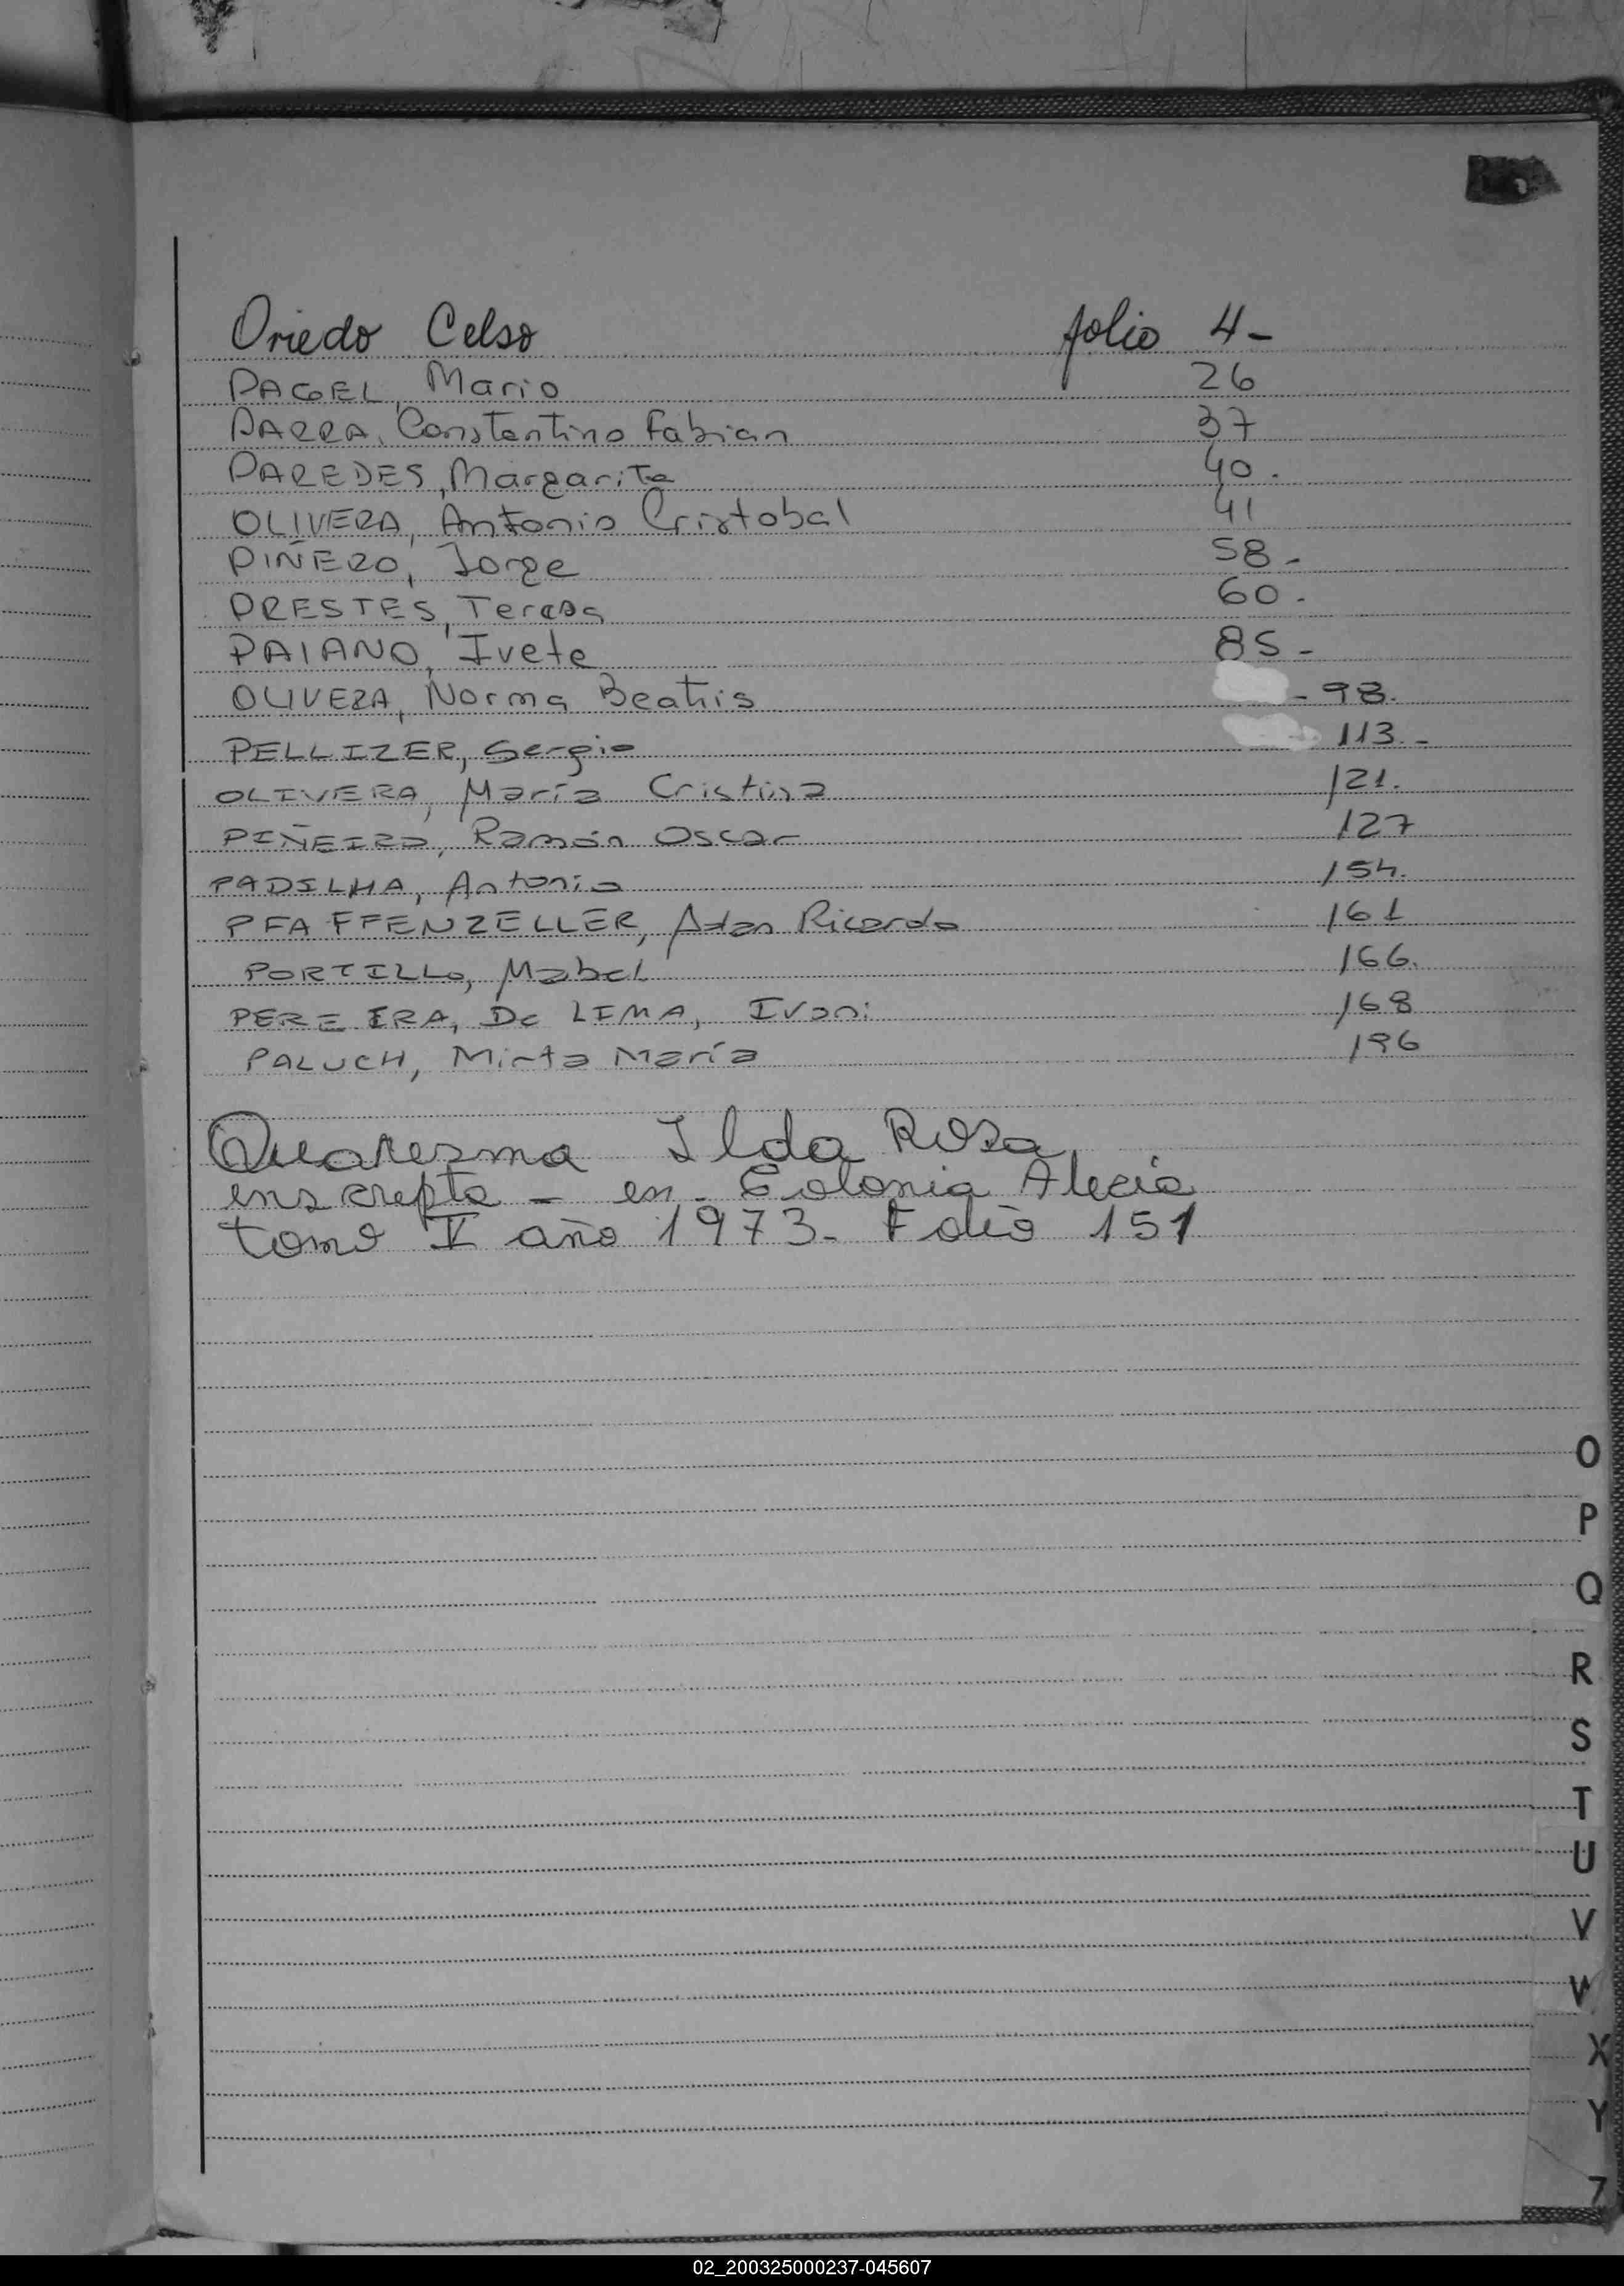 Oviedo Celso folio 4-
PAGEL, Mario 26
PARRA, Constantino Fabian 37
PAREDES, Margarita 40.
OLIVERA, Antonio Cristobal 41
PIÑERO, Jorge 58-
PRESTES, Teresa 60-
PAIANO, Ivete 85-
OLIVERA, Norma Beatris - 98.
PELLIZER, Sergio 113.-
OLIVERA, María Cristina 121.
PIÑEIRO, Ramón Oscar 127
PADILHA, Antonio 154.
PFAFFENZELLER, Adan Ricardo 161
PORTILLO, Mabel 166.
PEREIRA, De LIMA, Ivoni 168
PALUCH, Mirta María 196
Quaresma Ilda Rosa
inscripta - en - Colonia Alicia
tomo I año 1973- Folio 151
O
P
Q
R
S
T
U
V
W
X
Y
Z
02_200325000237-045607